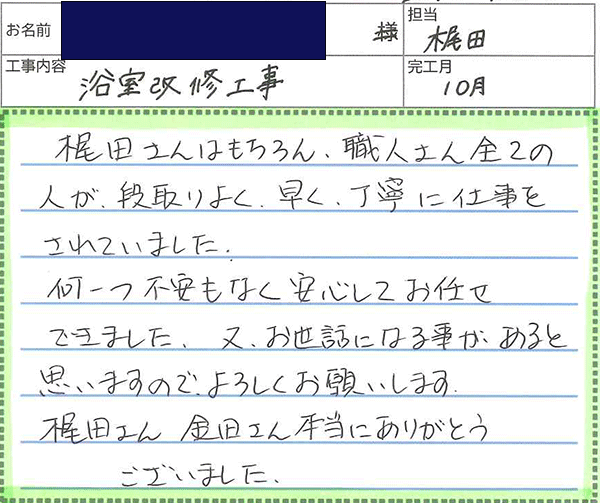 お名前 様 担当 梶田
工事内容 浴室改修工事 完工月 10月
梶田さんはもちろん、職人さん全ての
人が、段取りよく、早く、丁寧に仕事を
されていました。
何一つ不安もなく安心してお任せ
できました、又、お世話になる事が、あると
思いますので、よろしくお願いします
梶田さん 金田さん本当にありがとう
ございました、